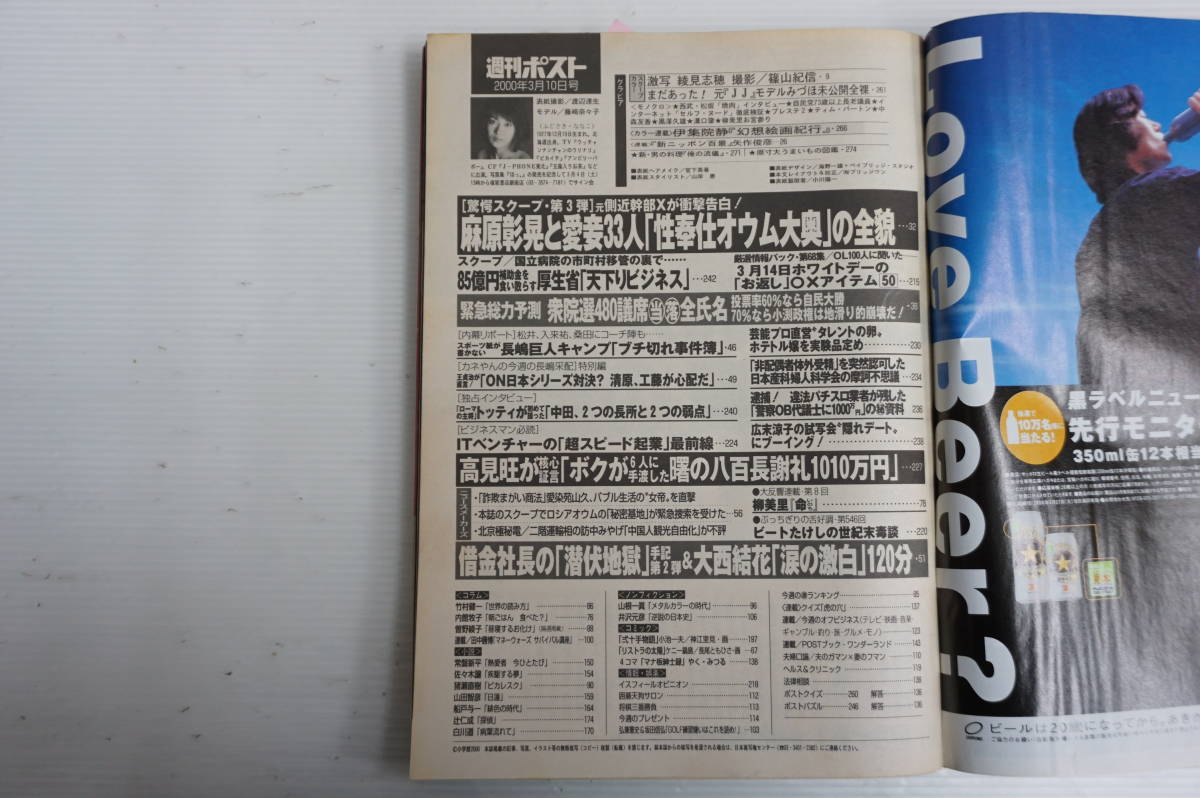 週刊ポスト
2000年3月10日号
表紙撮影/渡辺達生
モデル/藤崎奈々子
グラビア
激写 綾見志穂 撮影/篠山紀信・9
まだあった! 元『JJ』モデルみづほ未公開全裸・261
〈カラー連載〉伊集院静『幻想絵画紀行』・266
〈連載〉『新ニッポン百景』矢作俊彦・26
★新・男の料理『俺の流儀』・271 ★原寸大うまいもの図鑑・274
[驚愕スクープ・第3弾]元側近幹部Xが衝撃告白!
麻原彰晃と愛妾33人「性奉仕オウム大奥」の全貌…32
スクープ/国立病院の市町村移管の裏で……
85億円補助金を食い散らす厚生省「天下りビジネス」…242
厳選情報パック・第68集/OL100人に聞いた
3月14日ホワイトデーの
「お返し」○×アイテム[50]…215
緊急総力予測 衆院選480議席当落全氏名 投票率60%なら自民大勝
70%なら小渕政権は地滑り的崩壊だ!・36
[内幕リポート]松井、入来祐、桑田にコーチ陣も……
スポーツ紙が書かない長嶋巨人キャンプ「プチ切れ事件簿」…46
[カネやんの今週の長嶋采配]特別編
王貞治が直言!「ON日本シリーズ対決? 清原、工藤が心配だ」…49
[独占インタビュー]
「ローマの主将」トッティが初めて語った「中田、2つの長所と2つの弱点」…240
[ビジネスマン必読]
ITベンチャーの「超スピード起業」最前線…224
芸能プロ直営“タレントの卵”
ホテトル嬢を実験品定め…230
「非配偶者体外受精」を突然認可した
日本産科婦人科学会の摩訶不思議…234
逮捕! 違法パチスロ業者が残した
「警察OB代議士に1000万円」の㊙資料 236
広末涼子の試写会“隠れデート”
にブーイング!…238
高見旺が核心証言「ボクが6人に手渡した曙の八百長謝礼1010万円」…227
ニュースメーカーズ
・「詐欺まがい商法」愛染苑山久、バブル生活の“女帝”を直撃
・本誌のスクープでロシアオウムの「秘密基地」が緊急捜索を受けた…56
・北京極秘電/二階運輸相の訪中みやげ「中国人観光自由化」が不評
●大反響連載・第8回
柳美里『命』…76
●ぶっちぎりの舌好調・第546回
ビートたけしの世紀末毒談…220
借金社長の「潜伏地獄」手記第2弾&大西結花「涙の激白」120分・51
〈コラム〉
竹村健一「世界の読み方」…86
内館牧子「朝ごはん 食べた?」…78
曽野綾子「昼寝するお化け」…88
連載/田中勝博「マネーウォーズ サバイバル講座」…100
〈小説〉
常盤新平「熱愛者 今ひとたび」…150
佐々木譲「疾駆する夢」…154
猪瀬直樹「ピカレスク」…90
山田智彦「日蓮」…159
船戸与一「緋色の時代」…164
辻仁成「探偵」…174
白川道「病葉流れて」…170
〈ノンフィクション〉
山根一眞「メタルカラーの時代」…96
井沢元彦「逆説の日本史」…106
〈コミック〉
「弐十手物語」小池一夫/神江里見・画…197
「リストラの太陽」ケニー鍋島/長尾ともひさ・画…67
4コマ「マナ板紳士録」やく・みつる…138
イスフィールオピニオン…218
囲碁天狗サロン…112
将棋三面勝負…113
今週のプレゼント…114
今週の凄ランキング…95
〈連載〉クイズ「虎の穴」…137
連載/今週のオフビジネス(テレビ・映画・音楽・
ギャンブル・釣り・旅・グルメ・モノ)…123
連載/POSTブック・ワンダーランド…143
夫婦口論/夫のガマン×妻のフマン…110
ヘルス&クリニック…119
法律相談…138
ポストクイズ…260 解答…136
ポストパズル…246 解答…136
Love Beer?
抽選で
10万名様に
当たる!
黒ラベルニュー
先行モニタ
350ml缶12本相当
ビールは20歳になってから。あき